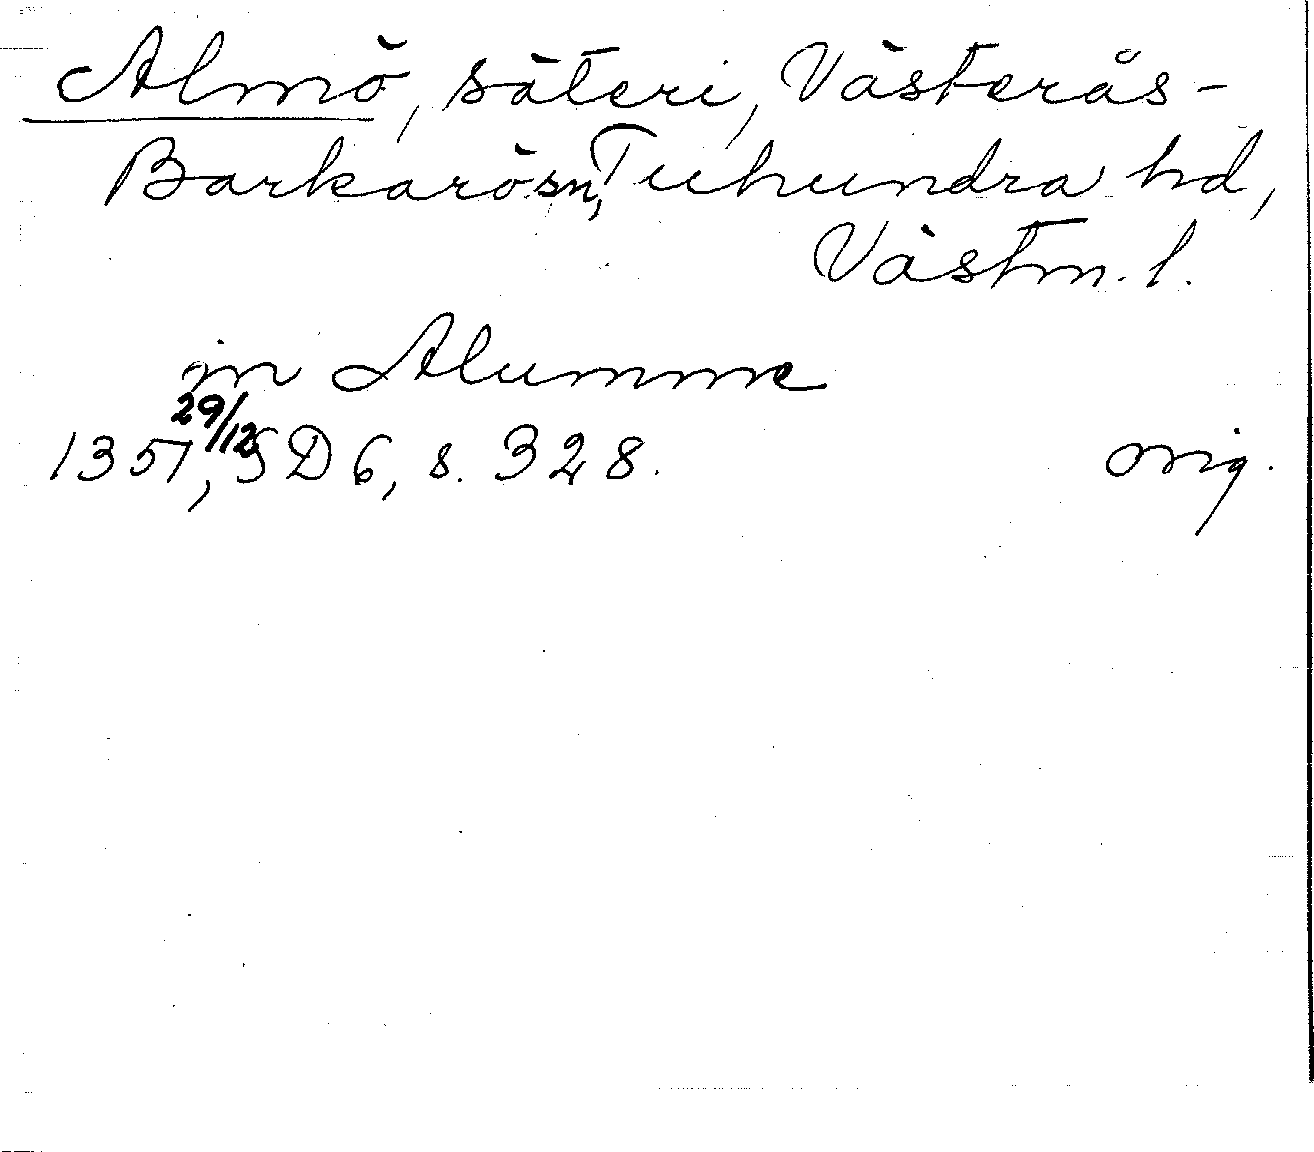 Almö, säteri, Västerås-
Barkarö sn, Tuhundra hd,
Västm. l.
in Alumme
1351, 29/12 SD 6, s. 328. orig.